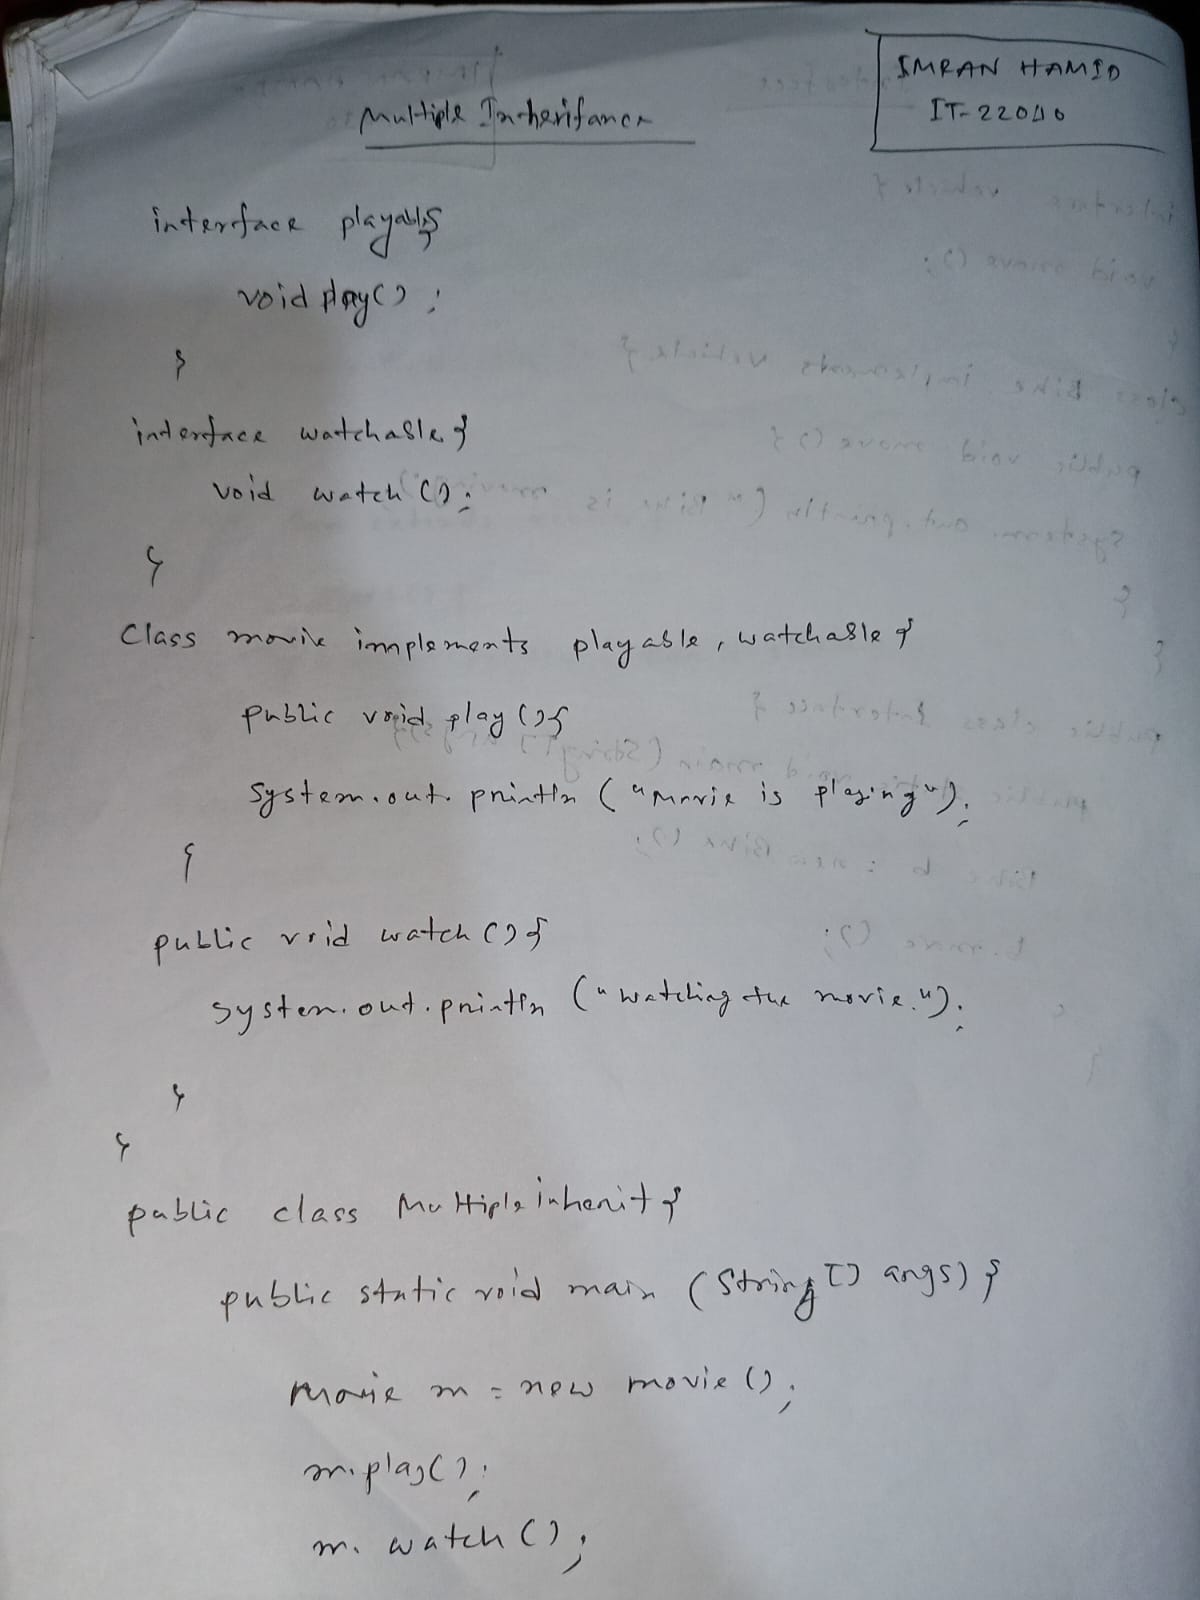 IMRAN HAMID
IT-22040
Multiple Inheritance
interface playable{
void play();
}
interface watchable{
void watch();
}
Class movie implements playable, watchable{
public void play(){
System.out.println("Movie is playing");
}
public void watch(){
System.out.println("Watching the movie.");
}
}
public class Multipleinherit{
public static void main (String[] args){
Movie m = new movie();
m.play();
m.watch();